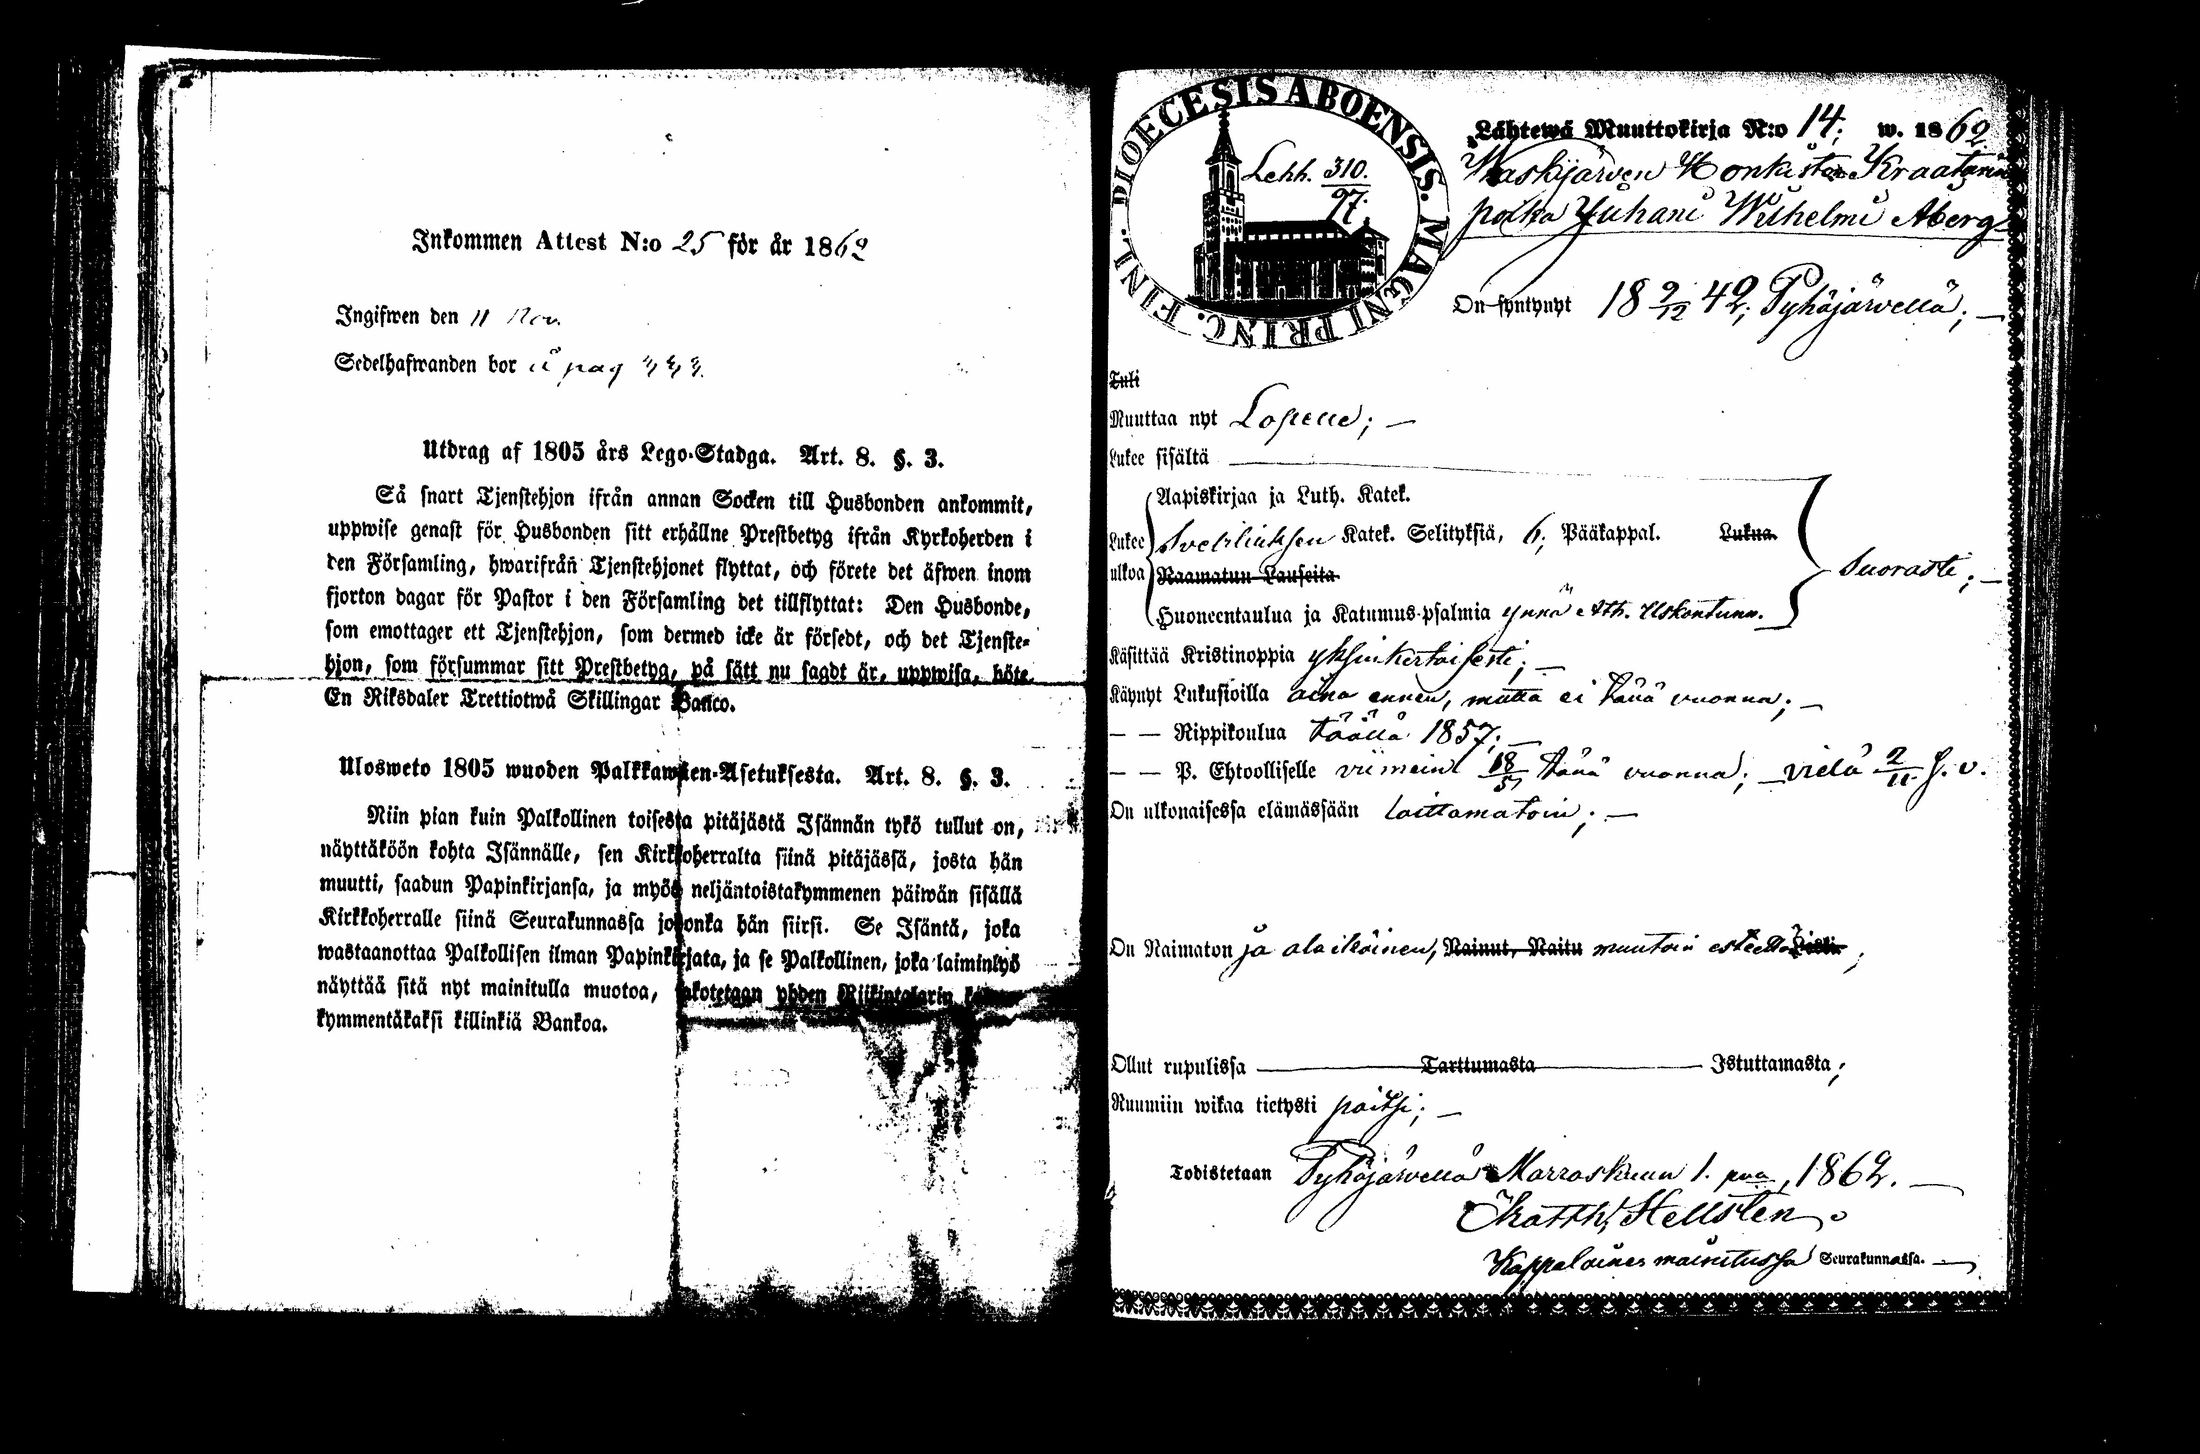 Inkommen Attest N:o 25 för år 1862
Ingifwen den 11 Nov.
Sedelhafwanden bor å pag
Utdrag af 1805 års Lego-Stadga. Art. 8. §. 3.
Så snart Tjenstehjon ifrån annan Socken till Husbonden ankommit,
uppwise genast för Husbonden sitt erhållne Prestbetyg ifrån Kyrkoherden i
den Församling, hwarifrån Tjenstehjonet flyttat, och förete det äfwen inom
fjorton dagar för Pastor i den Församling det tillflyttat: Den Husbonde,
som emottager ett Tjenstehjon, som dermed icke är försedt, och det Tjenste-
hjon, som försummar sitt Prestbetyg, på sätt nu sagdt är, uppwisa, böte
En Riksdaler Trettiotwå Skillingar Banco.
Ulosweto 1805 wuoden Palkkawäen-Asetuksesta. Art. 8. §. 3.
Niin pian kuin Palkollinen toisesta pitäjästä Isännän tykö tullut on,
näyttäköön kohta Isännälle, sen Kirkkoherralta siinä pitäjässä, josta hän
muutti, saadun Papinkirjansa, ja myös neljäntoistakymmenen päiwän sisällä
Kirkkoherralle siinä Seurakunnassa johonka hän siirsi. Se Isäntä, joka
wastaanottaa Palkollisen ilman Papinkirjata, ja se Palkollinen, joka laiminlyö
näyttää sitä nyt mainitulla muotoa, sakotetaan yhden Riikintalarin
kymmentäkaksi killinkiä Bankoa.
DIOECESIS ABOENSIS. MAGNI PRINC. FINL.
Lehh. 310.
97.
Lähtewä Muuttokirja N:o 14; w. 1862
Waskijärven Honkiston Kraatarin
poika Juhani Wilhelmi Aberg
On syntynyt 18 2/12 42; Pyhäjärvellä; —
Tuli
Muuttaa nyt Lopelle; —
Lukee sisältä
Aapiskirjaa ja Luth. Katek.
Lukee ulkoa Svebiliuksen Katek. Selityksiä, 6; Pääkappal. Lukua.
Raamatun Lauseita
Huoneentaulua ja Katumus-psalmia ynnä Ath. Uskontunn.
Suorasti; —
Käsittää Kristinoppia yksinkertaisesti; —
Käynyt Lukusioilla aina ennen, mutta ei tänä vuonna; —
— — Rippikoulua täällä 1857; —
— — P. Ehtoolliselle viimein 18/5 tänä vuonna; — vielä 2/11 s. v.
On ulkonaisessa elämässään laittamatoin; —
On Naimaton ja alaikäinen, Nainut, Naitu muutoin esteetöin;
Ollut rupulissa Tarttumasta Istuttamasta;
Ruumiin wikaa tietysti paitsi; —
Todistetaan Pyhäjärvellä Marraskuun 1. pnä, 1862. —
Matth. Hellsten.
Kappalainen mainitussa Seurakunnassa. —